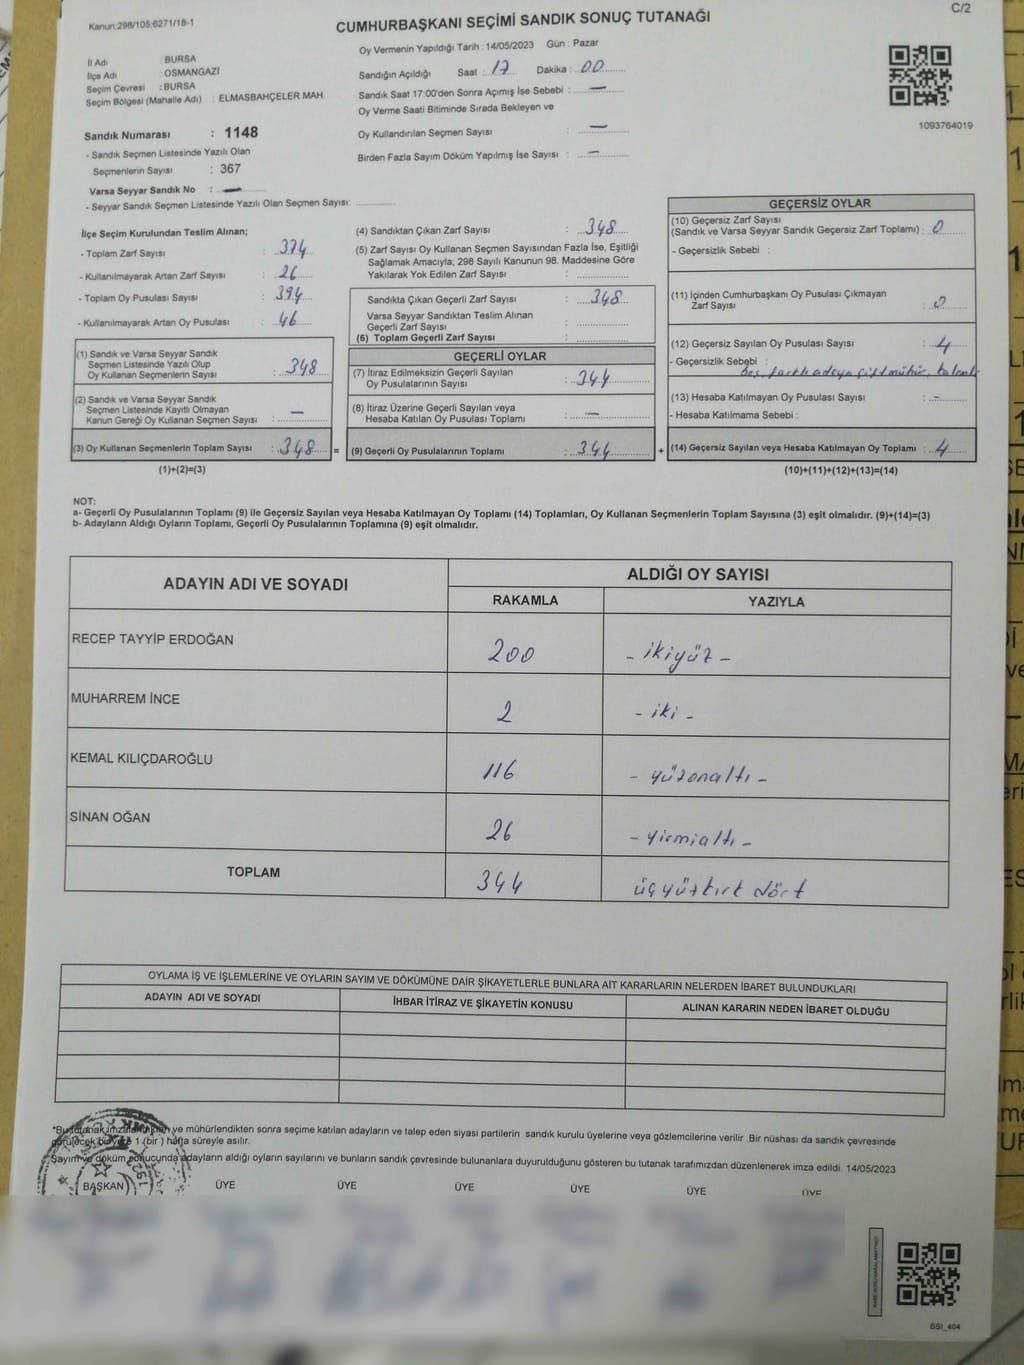 C/2
Kanun:298/105;6271/18-1
CUMHURBAŞKANI SEÇİMİ SANDIK SONUÇ TUTANAĞI
İl Adı : BURSA
İlçe Adı : OSMANGAZİ
Seçim Çevresi : BURSA
Seçim Bölgesi (Mahalle Adı) : ELMASBAHÇELER MAH.
Sandık Numarası : 1148
- Sandık Seçmen Listesinde Yazılı Olan
Seçmenlerin Sayısı : 367
Varsa Seyyar Sandık No : —
- Seyyar Sandık Seçmen Listesinde Yazılı Olan Seçmen Sayısı:
Oy Vermenin Yapıldığı Tarih : 14/05/2023 Gün : Pazar
Sandığın Açıldığı Saat : 17 Dakika : 00
Sandık Saat 17:00'den Sonra Açımış İse Sebebi : —
Oy Verme Saati Bitiminde Sırada Bekleyen ve
Oy Kullandırılan Seçmen Sayısı : —
Birden Fazla Sayım Döküm Yapılmış İse Sayısı : —
1093764019
İlçe Seçim Kurulundan Teslim Alınan;
- Toplam Zarf Sayısı : 374
- Kullanılmayarak Artan Zarf Sayısı : 26
- Toplam Oy Pusulası Sayısı : 394
- Kullanılmayarak Artan Oy Pusulası : 46
(1) Sandık ve Varsa Seyyar Sandık
Seçmen Listesinde Yazılı Olup
Oy Kullanan Seçmenlerin Sayısı : 348
(2) Sandık ve Varsa Seyyar Sandık
Seçmen Listesinde Kayıtlı Olmayan
Kanun Gereği Oy Kullanan Seçmen Sayısı : —
(3) Oy Kullanan Seçmenlerin Toplam Sayısı : 348 =
(1)+(2)=(3)
(4) Sandıktan Çıkan Zarf Sayısı : 348
(5) Zarf Sayısı Oy Kullanan Seçmen Sayısından Fazla İse, Eşitliği
Sağlamak Amacıyla; 298 Sayılı Kanunun 98. Maddesine Göre
Yakılarak Yok Edilen Zarf Sayısı :
Sandıkta Çıkan Geçerli Zarf Sayısı : 348
Varsa Seyyar Sandıktan Teslim Alınan
Geçerli Zarf Sayısı :
(6) Toplam Geçerli Zarf Sayısı :
GEÇERLİ OYLAR
(7) İtiraz Edilmeksizin Geçerli Sayılan
Oy Pusulalarının Sayısı : 344
(8) İtiraz Üzerine Geçerli Sayılan veya
Hesaba Katılan Oy Pusulası Toplamı : —
(9) Geçerli Oy Pusulalarının Toplamı : 344 +
GEÇERSİZ OYLAR
(10) Geçersiz Zarf Sayısı
(Sandık ve Varsa Seyyar Sandık Geçersiz Zarf Toplamı) : 0
- Geçersizlik Sebebi :
(11) İçinden Cumhurbaşkanı Oy Pusulası Çıkmayan
Zarf Sayısı : 0
(12) Geçersiz Sayılan Oy Pusulası Sayısı : 4
- Geçersizlik Sebebi :
boş, farklı adaya çift mühür,
(13) Hesaba Katılmayan Oy Pusulası Sayısı : -
- Hesaba Katılmama Sebebi :
(14) Geçersiz Sayılan veya Hesaba Katılmayan Oy Toplamı : 4
(10)+(11)+(12)+(13)=(14)
NOT:
a- Geçerli Oy Pusulalarının Toplamı (9) ile Geçersiz Sayılan veya Hesaba Katılmayan Oy Toplamı (14) Toplamları, Oy Kullanan Seçmenlerin Toplam Sayısına (3) eşit olmalıdır. (9)+(14)=(3)
b- Adayların Aldığı Oyların Toplamı, Geçerli Oy Pusulalarının Toplamına (9) eşit olmalıdır.
ADAYIN ADI VE SOYADI
ALDIĞI OY SAYISI
RAKAMLA YAZIYLA
RECEP TAYYİP ERDOĞAN 200 - ikiyüz -
MUHARREM İNCE 2 - iki -
KEMAL KILIÇDAROĞLU 116 - yüzonaltı -
SİNAN OĞAN 26 - yirmialtı -
TOPLAM 344 üçyüzkırk dört
OYLAMA İŞ VE İŞLEMLERİNE VE OYLARIN SAYIM VE DÖKÜMÜNE DAİR ŞİKAYETLERLE BUNLARA AİT KARARLARIN NELERDEN İBARET BULUNDUKLARI
ADAYIN ADI VE SOYADI İHBAR İTİRAZ VE ŞİKAYETİN KONUSU ALINAN KARARIN NEDEN İBARET OLDUĞU
*Bu tutanak imzalandıktan ve mühürlendikten sonra seçime katılan adayların ve talep eden siyasi partilerin sandık kurulu üyelerine veya gözlemcilerine verilir .Bir nüshası da sandık çevresinde
görülecek bir yere 1 (bir ) hafta süreyle asılır.
Sayım ve döküm sonucunda adayların aldığı oyların sayılarını ve bunların sandık çevresinde bulunanlara duyurulduğunu gösteren bu tutanak tarafımızdan düzenlenerek imza edildi. 14/05/2023
BAŞKAN ÜYE ÜYE ÜYE ÜYE ÜYE ÜYE